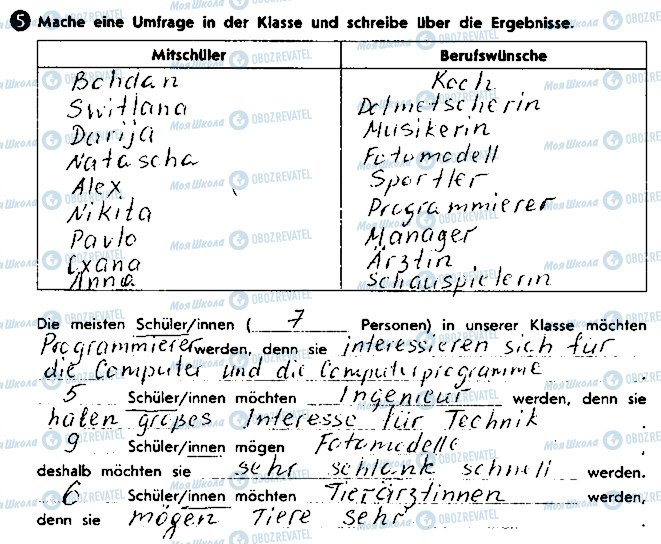 5 Mache eine Umfrage in der Klasse und schreibe über die Ergebnisse.
Mitschüler Berufswünsche
Bohdan Koch
Switlana Dolmetscherin
Darija Musikerin
Natascha Fotomodell
Alex Sportler
Nikita Programmierer
Pavlo Manager
Oxana Ärztin
Anna Schauspielerin
Die meisten Schüler/innen ( 7 Personen) in unserer Klasse möchten
Programmierer werden, denn sie interessieren sich für
die Computer und die Computerprogramme .
5 Schüler/innen möchten Ingenieur werden, denn sie
haben großes Interesse für Technik .
9 Schüler/innen mögen Fotomodelle
deshalb möchten sie sehr schlank schnell werden.
6 Schüler/innen möchten Tierärztinnen werden,
denn sie mögen Tiere sehr .
МояШкола OBOZREVATEL